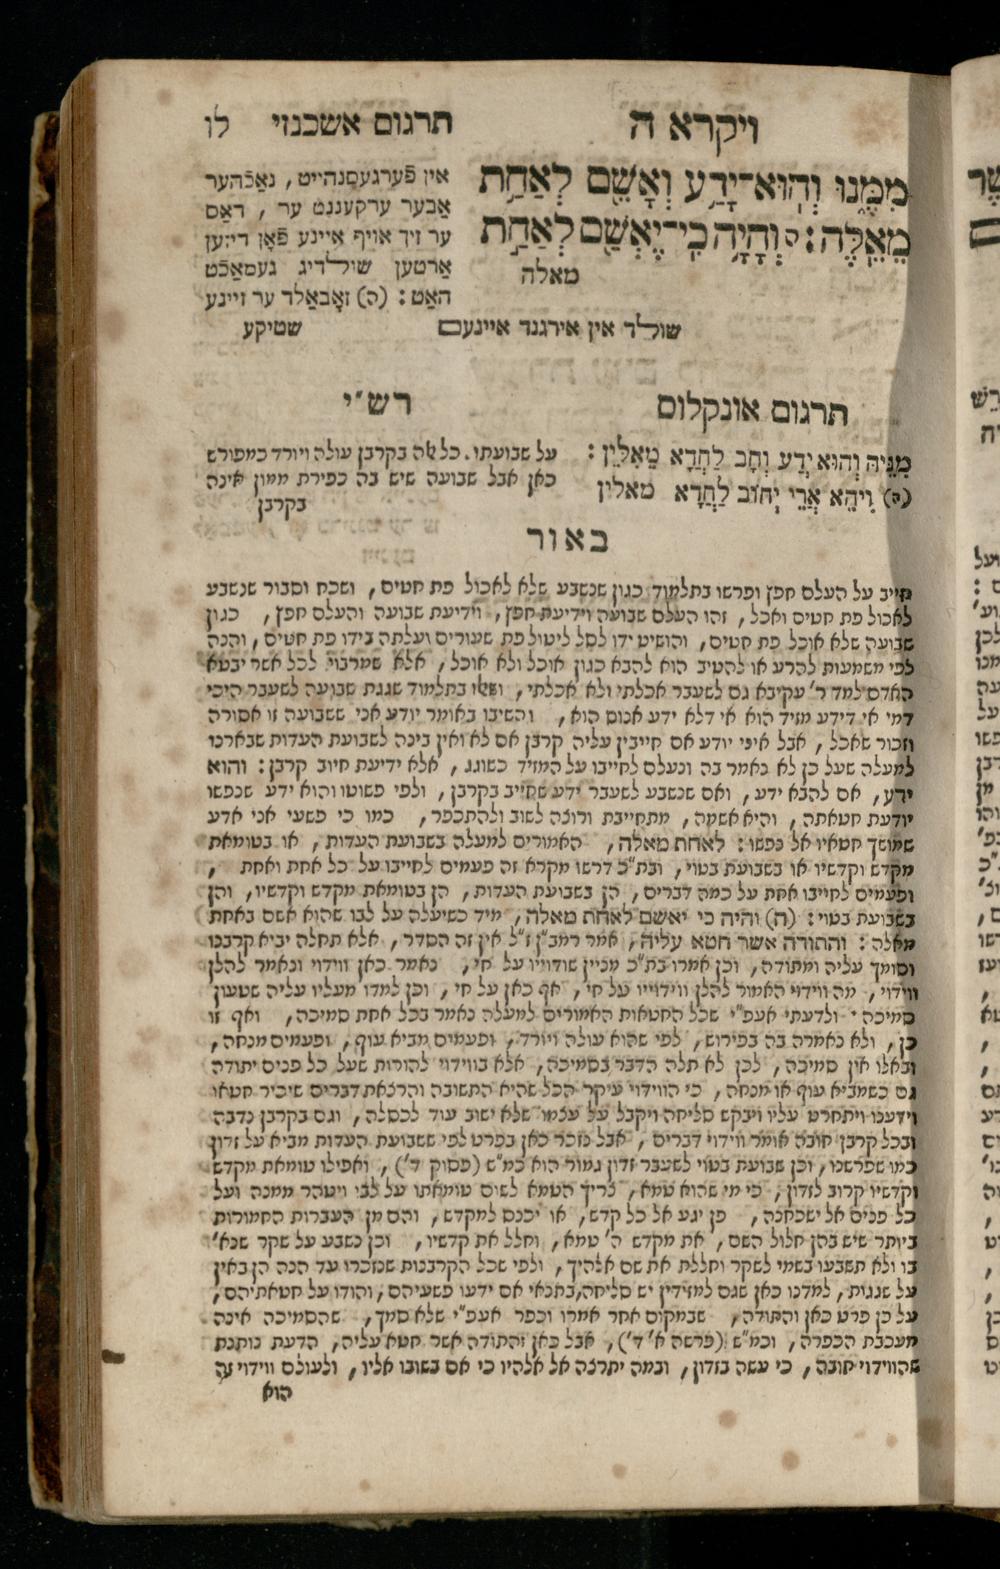 ויקרא ה
תרגום אשכנזי
לו
מִמֶּ֑נּוּ וְהֽוּא־יָדַ֥ע וְאָשֵׁ֖ם לְאַחַ֥ת
מֵאֵֽלֶּה׃ ה וְהָיָ֥ה כִֽי־יֶאְשַׁ֖ם לְאַחַ֣ת
מאלה
אין פֿערגעסנהייט, נאַכֿהער
אבער ערקעננט ער, דאַס
ער זיך אויף איינע פֿאָן דיזען
אַרטען שולדיג געמאַכֿט
האַט: (ה) זאָבאַלד ער זיינע
שולד אין אירגנד איינעם
שטיקע
תרגום אונקלוס
מִנֵּיהּ וְהוּא יְדַע וְחָב לַחֲדָא מֵאִלֵּין:
(ה) וִיהֵא אֲרֵי יְחוֹב לַחֲדָא מאלין
רש"י
על שבועתו. כל אלה בקרבן עולה ויורד כמפורש
כאן אבל שבועה שיש בה כפירת ממון אינה
בקרבן
באור
חייב על העלם חפץ ופרשו בתלמוד כגון שנשבע שלא לאכול פת חטים, ושכח וסבור שנשבע
לאכול פת חטים ואכל, זהו העלם שבועה וידיעת חפץ, וידיעת שבועה והעלם חפץ, כגון
שבועה שלא אוכל פת חטים, והושיט ידו לסל ליטול פת שעורים ועלתה בידו פת חטים, והנה
לפי משמעות להרע או להטיב הוא להבא כגון אוכל ולא אוכל, אלא שמרבוי לכל אשר יבטא
האדם למד ר' עקיבא גם לשעבר אכלתי ולא אכלתי, ושאלו בתלמוד שגגת שבועה לשעבר היכי
דמי אי דידע מזיד הוא אי דלא ידע אנוס הוא, והשיבו באומר יודע אני ששבועה זו אסורה
וזכור שאכל, אבל איני יודע אם חייבין עליה קרבן אם לא ואין בינה לשבועת העדות שבארנו
למעלה שעל כן לא נאמר בה ונעלם לחייבו על המזיד כשוגג, אלא ידיעת חיוב קרבן: והוא
ידע, אם להבא ידע, ואם שנשבע לשעבר ידע שחייב בקרבן, ולפי פשוטו והוא ידע שנפשו
יודעת חטאתה, והיא אשמה, מתחייבת ורוצה לשוב ולהתכפר, כמו כי פשעי אני אדע
שמושך חטאיו אל נפשו: לאחת מאלה, האמורים למעלה בשבועת העדות, או בטומאת
מקדש וקדשיו או בשבועת בטוי, ובת"כ דרשו מקרא זה פעמים לחייבו על כל אחת ואחת,
ופעמים לחייבו אחת על כמה דברים, הן בשבועת העדות, הן בטומאת מקדש וקדשיו, והן
בשבועת בטוי: (ה) והיה כי יאשם לאחת מאלה, מיד כשיעלה על לבו שהוא אשם באחת
מאלה: והתודה אשר חטא עליה, אמר רמב"ן ז"ל אין זה הסדר, אלא תחלה יביא קרבנו
וסומך עליה ומתודה, וכן אמרו בת"כ מניין שוידויו על חי, נאמר כאן ווידוי ונאמר להלן
ווידוי, מה ווידוי האמור להלן ווידוייו על חי, אף כאן על חי, וכן למדו מעליו עליה שטעון
סמיכה. ולדעתי אעפ"י שכל החטאות האמורים למעלה נאמר בכל אחת סמיכה, ואף זו
כן, ולא נאמרה בה בפירוש, לפי שהוא עולה ויורד, ופעמים מביא עוף, ופעמים מנחה,
ובאלו אין סמיכה, לכן לא תלה הדבר בסמיכה, אלא בווידוי להורות שעל כל פנים יתודה
גם כשמביא עוף או מנחה, כי הווידוי עיקר הכל שהיא התשובה והרצאת דברים שיכיר חטאו
וידענו ויתחרט עליו ויבקש סליחה ויקבל על עצמו שלא ישוב עוד לכסלה, וגם בקרבן נדבה
ובכל קרבן חובה אומר ווידוי דברים, אבל נזכר כאן בפרט לפי ששבועת העדות מביא על זדון
כמו שפרשנו, וכן שבועת בטוי לשעבר זדון גמור הוא כמ"ש (פסוק ד'), ואפילו טומאת מקדש
וקדשיו קרוב לזדון, כי מי שהוא טמא, צריך הטמא לשום טומאתו על לבו ויטהר ממנה ועל
כל פנים אל ישכחנה, פן יגע אל כל קדש, או יכנס למקדש, והם מן העברות החמורות
ביותר שיש בהן חלול השם, את מקדש ה' טמא, וחלל את קדשיו, וכן נשבע על שקר שנא'
בו ולא תשבעו בשמי לשקר וחללת את שם אלהיך, ולפי שכל הקרבנות שנזכרו עד הנה הן באין
על שגגות, למדנו כאן שגם למזידין יש סליחה, בתנאי אם ידעו פשעיהם, והודו על חטאתיהם,
על כן פרט כאן והתודה, שבמקום אחר אמרו וכפר אעפ"י שלא סמך, שהסמיכה אינה
מעכבת הכפרה, וכמ"ש (פרשה א' ד'), אבל כאן והתודה אשר חטא עליה, הדעת נותנת
שהווידוי חובה, כי עשה בזדון, ובמה יתרצה אל אלהיו כי אם בשובו אליו, ולעולם ווידוי זה
הוא